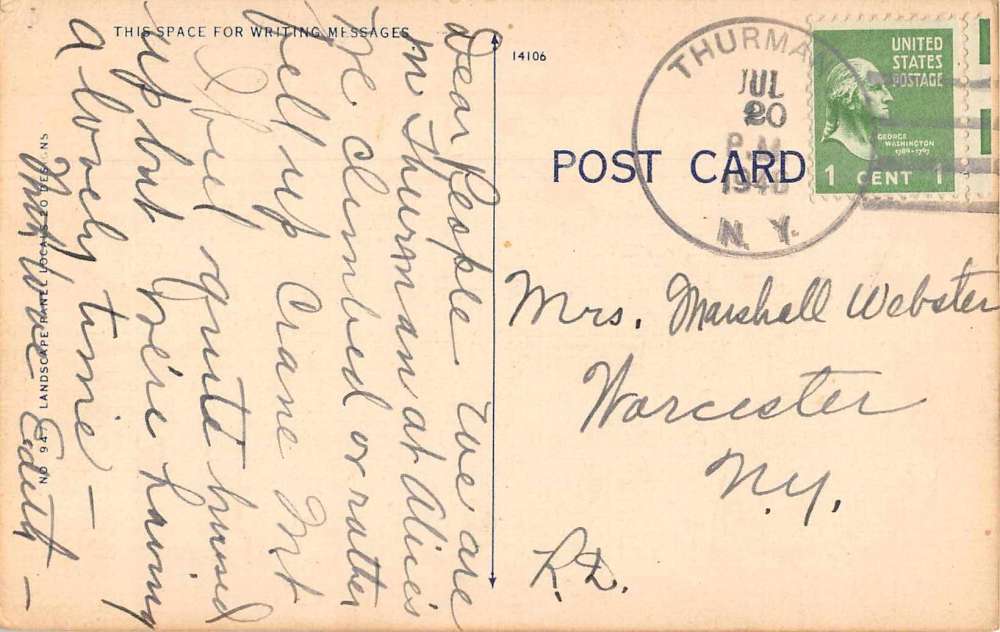 THIS SPACE FOR WRITING MESSAGES
Dear People. We are
in Thurman at Alice's
We climbed or rather
fell up Crane Mt
I feel quite bruised
up but we're having
a lovely time —
Edith —
NO 947 LANDSCAPE PANEL LOCALS 20 DESIGNS
14106
POST CARD
THURMAN
JUL
20
P.M.
1946
N. Y.
UNITED
STATES
POSTAGE
GEORGE
WASHINGTON
1789-1797
1 CENT 1
Mrs. Marshall Webster
Worcester
N.Y.
R.D.